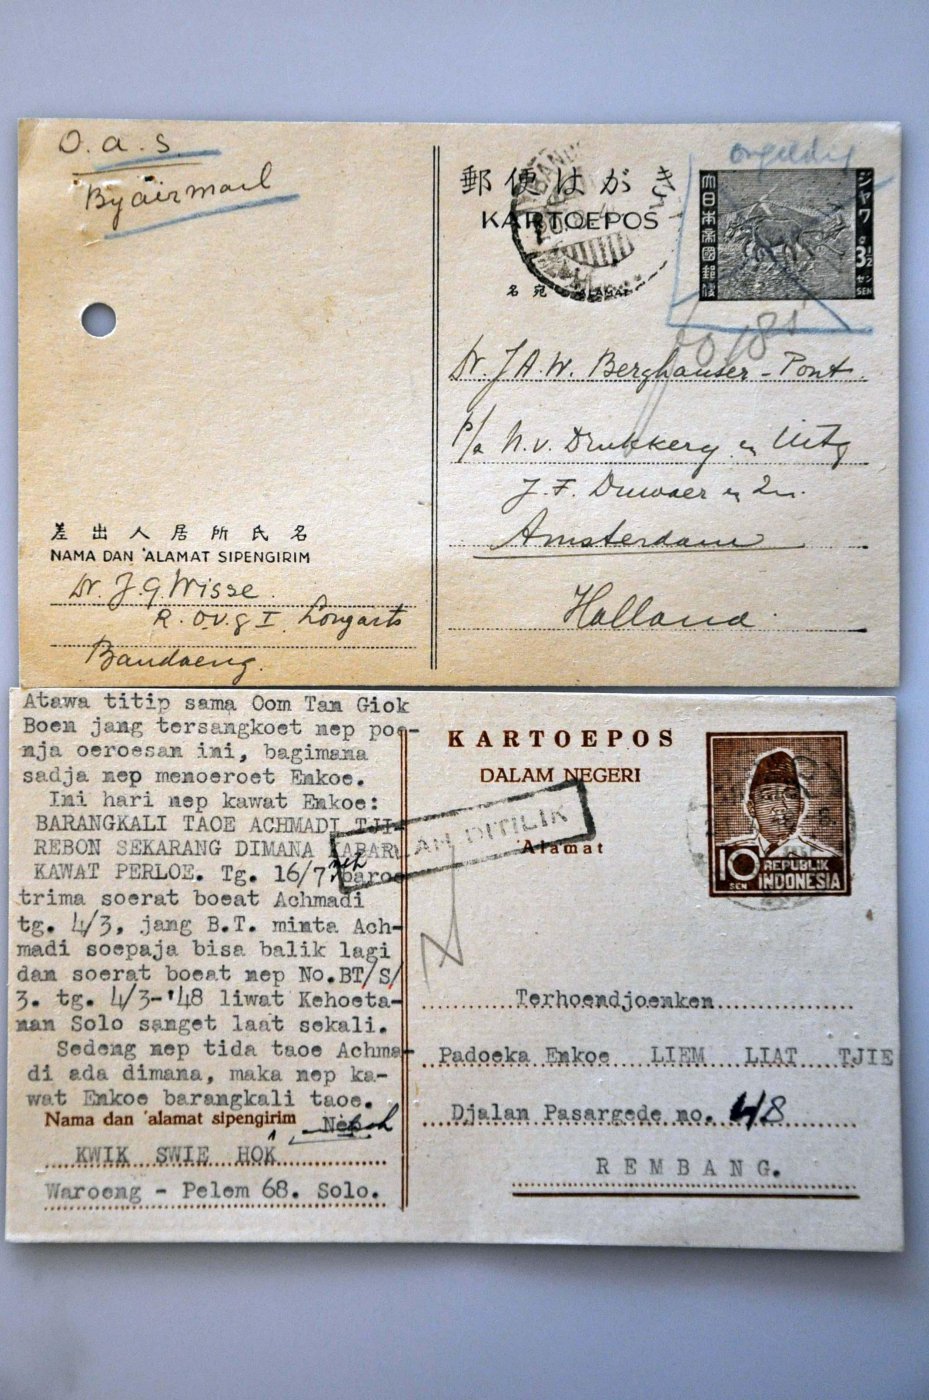 O. a. s.
By airmail
郵便はがき
KARTOEPOS
ongeldig
大日本帝國郵便
ジャワ
3½
セン
SEN
名宛
Dr. J A. W. Berghauser - Pont.
p/a N.V. Drukkery en Uitg
J. F. Duwaer en Zn.
Amsterdam
Holland.
差出人居所氏名
NAMA DAN 'ALAMAT SIPENGIRIM
Dr. J. G. Wisse.
Bandoeng.
Atawa titip sama Oom Tan Giok
Boen jang tersangkoet nep poe-
nja oeroesan ini, bagimana
sadja nep menoeroet Enkoe.
Ini hari nep kawat Enkoe:
BARANGKALI TAOE ACHMADI TJI-
REBON SEKARANG DIMANA KABAR
KAWAT PERLOE. Tg. 16/7 neh baroe
trima soerat boeat Achmadi
tg. 4/3, jang B.T. minta Ach-
madi soepaja bisa balik lagi
dan soerat boeat nep No.BT/S/
3. tg. 4/3-'48 liwat Kehoeta-
nan Solo sanget laat sekali.
Sedeng nep tida taoe Achma-
di ada dimana, maka nep ka-
wat Enkoe barangkali taoe.
Nama dan 'alamat sipengirim
KWIK SWIE HOK
Waroeng - Pelem 68. Solo.
KARTOEPOS
DALAM NEGERI
'Alamat
AH DITILIK
10
SEN
REPUBLIK
INDONESIA
Terhoendjoenken
Padoeka Enkoe LIEM LIAT TJIE
Djalan Pasargede no. 48
REMBANG.